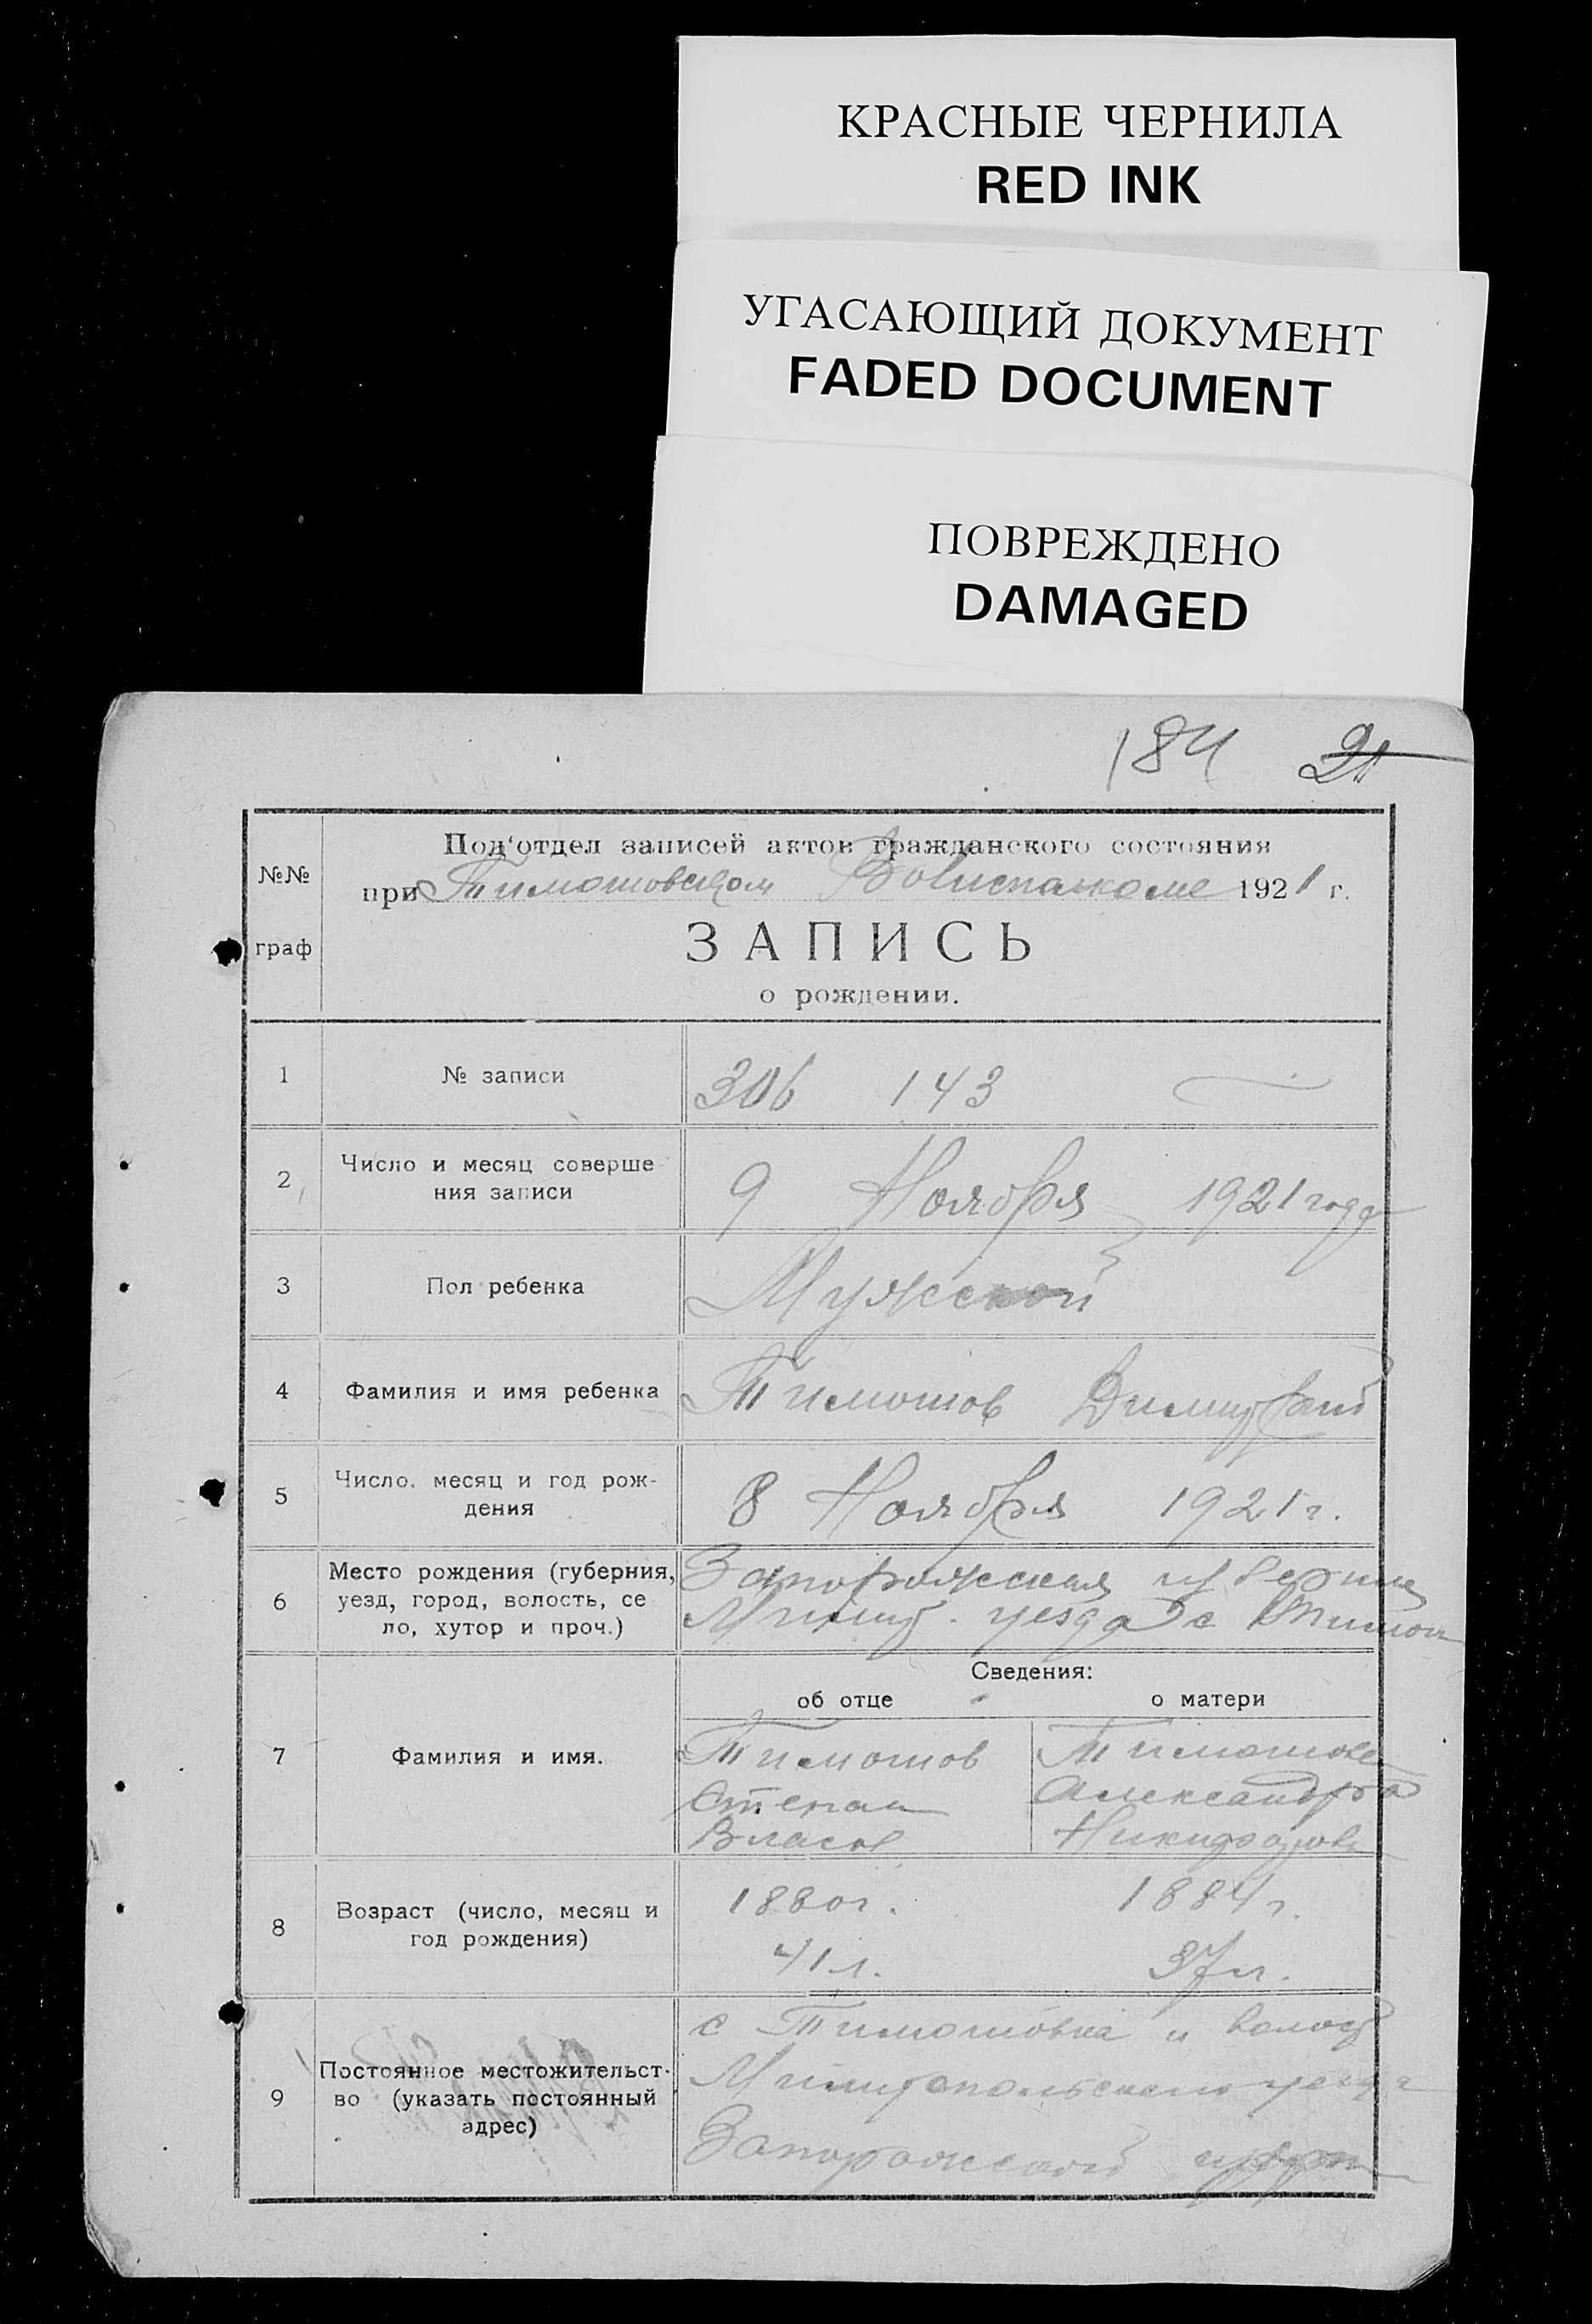 КРАСНЫЕ ЧЕРНИЛА
RED INK
УГАСАЮЩИЙ ДОКУМЕНТ
FADED DOCUMENT
ПОВРЕЖДЕНО
DAMAGED
184 21
№№ граф
Под'отдел записей актов гражданского состояния
при Тимошовском Волисполкоме 1921 г.
ЗАПИСЬ
о рождении.
1 № записи 306 143
2 Число и месяц соверше
ния записи 9 Ноября 1921 года
3 Пол ребенка Мужской
4 Фамилия и имя ребенка Тимошов Димитрий
5 Число, месяц и год рож-
дения 8 Ноября 1921 г.
6 Место рождения (губерния,
уезд, город, волость, се
ло, хутор и проч.)
Запорожская губерния
Мелит. уезда с Тимош
Сведения:
об отце о матери
7 Фамилия и имя.
Тимошов Тимошова
Степан Александра
Власов Никифорова
8 Возраст (число, месяц и
год рождения)
1880 г. 1884 г.
41 л. 37 л.
9 Постоянное местожительст-
во (указать постоянный
адрес)
с Тимошовка и волост
Мелитопольского уезда
Запорожской губерн